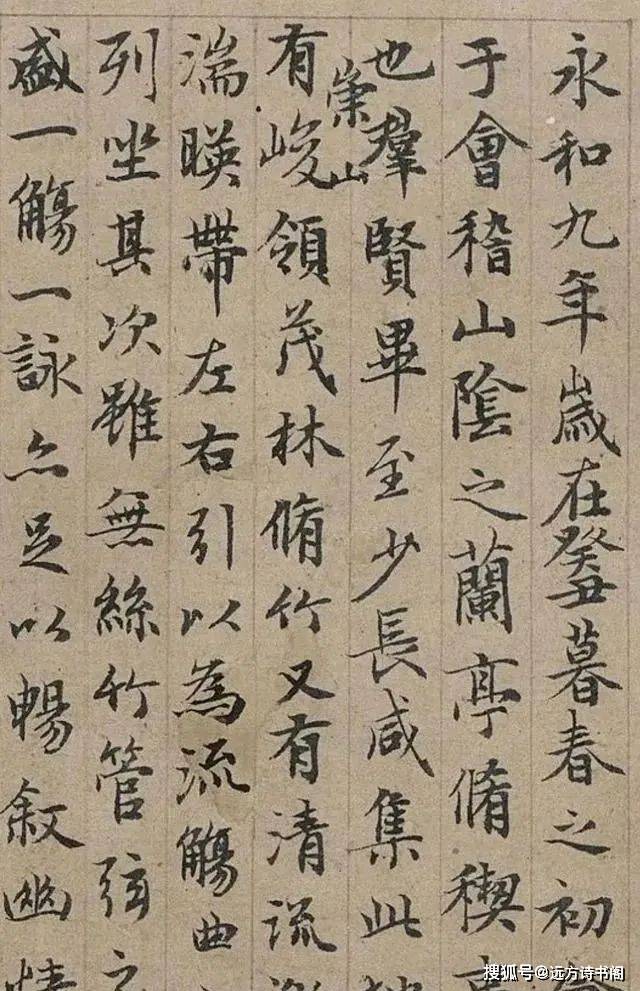 永和九年歲在癸丑暮春之初
于會稽山陰之蘭亭脩稧
也羣賢畢至少長咸集此
有崇山峻領茂林脩竹又有清流
湍暎帶左右引以為流觴曲
列坐其次雖無絲竹管弦之
盛一觴一詠亦足以暢叙幽情
搜狐号@远方诗书阁